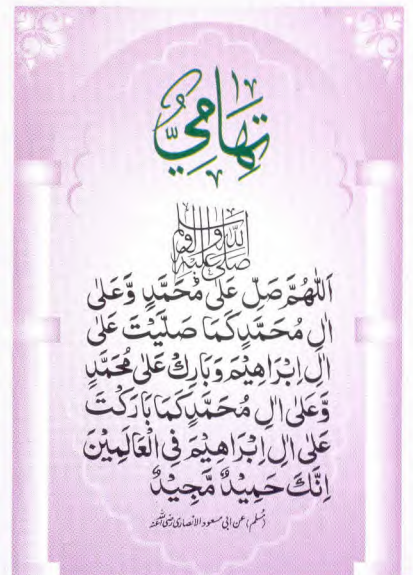 تِهَامِيٌّ
صَلَّى اللهُ عَلَيْهِ وَاٰلِهٖ وَسَلَّمَ
اَللّٰهُمَّ صَلِّ عَلٰى مُحَمَّدٍ وَّعَلٰى
اٰلِ مُحَمَّدٍ كَمَا صَلَّيْتَ عَلٰى
اٰلِ اِبْرَاهِيْمَ وَبَارِكْ عَلٰى مُحَمَّدٍ
وَّعَلٰى اٰلِ مُحَمَّدٍ كَمَا بَارَكْتَ
عَلٰى اٰلِ اِبْرَاهِيْمَ فِى الْعَالَمِيْنَ
اِنَّكَ حَمِيْدٌ مَّجِيْدٌ
(مُسلم) عن ابی مسعود الانصاری رضی اللہ عنہ